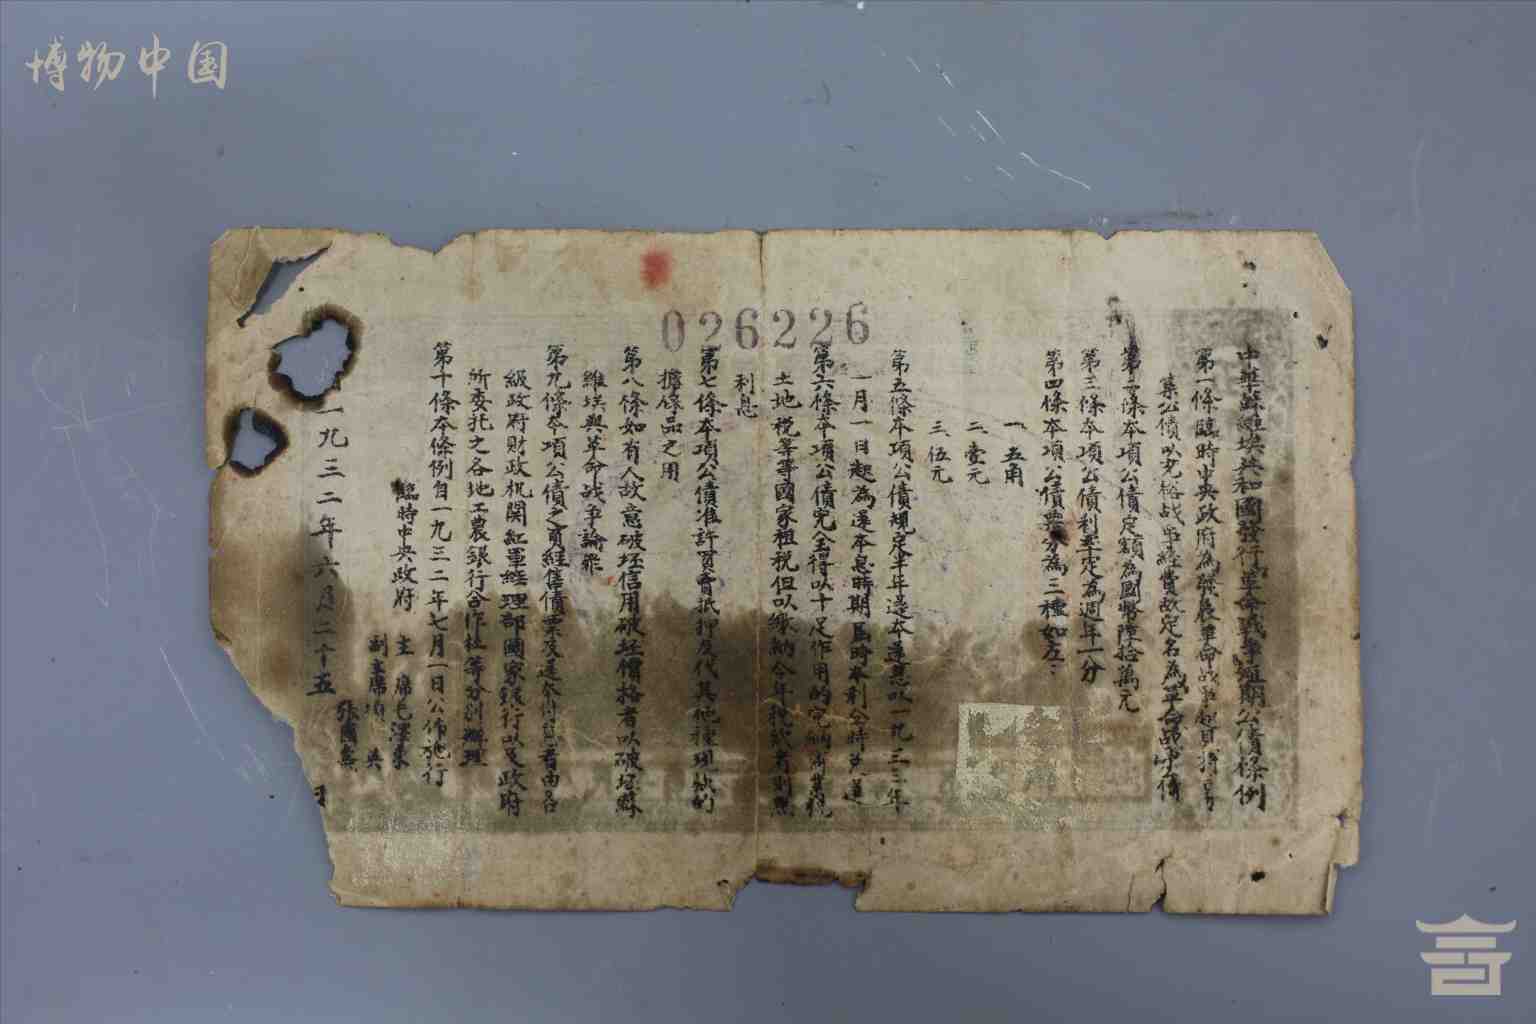 博物中国
026226
中華蘇維埃共和國發行革命戰爭短期公債條例
第一條臨時中央政府為發展革命战爭起見特募
集公債以充裕战爭經費故定名為革命战爭公債
第二條本項公債定額為國幣陸拾萬元
第三條本項公債利率定為週年一分
第四條本項公債票分為三種如左：
一、五角
二、壹元
三、伍元
第五條本項公債規定半年還本還息以一九三三年
一月一日起為還本息時期屆時本利全時兌還
第六條本項公債完全得以十足作用的完納商業税
土地税等等國家租税但以繳納今年税款者則無
利息
第七條本項公債准許買賣抵押及代其他種現款的
擔保品之用
第八條如有人故意破坯信用破坯價格者以破坯蘇
維埃與革命战爭論罪
第九條本項公債之買經售債票及還本付息者由各
級政府財政机関紅軍經理部國家銀行以及政府
所委托之各地工農銀行合作社等分别辦理
第十條本條例自一九三二年七月一日公佈施行
臨時中央政府 主 席毛澤東
副主席項 英
張國燾
一九三二年六月二十五日